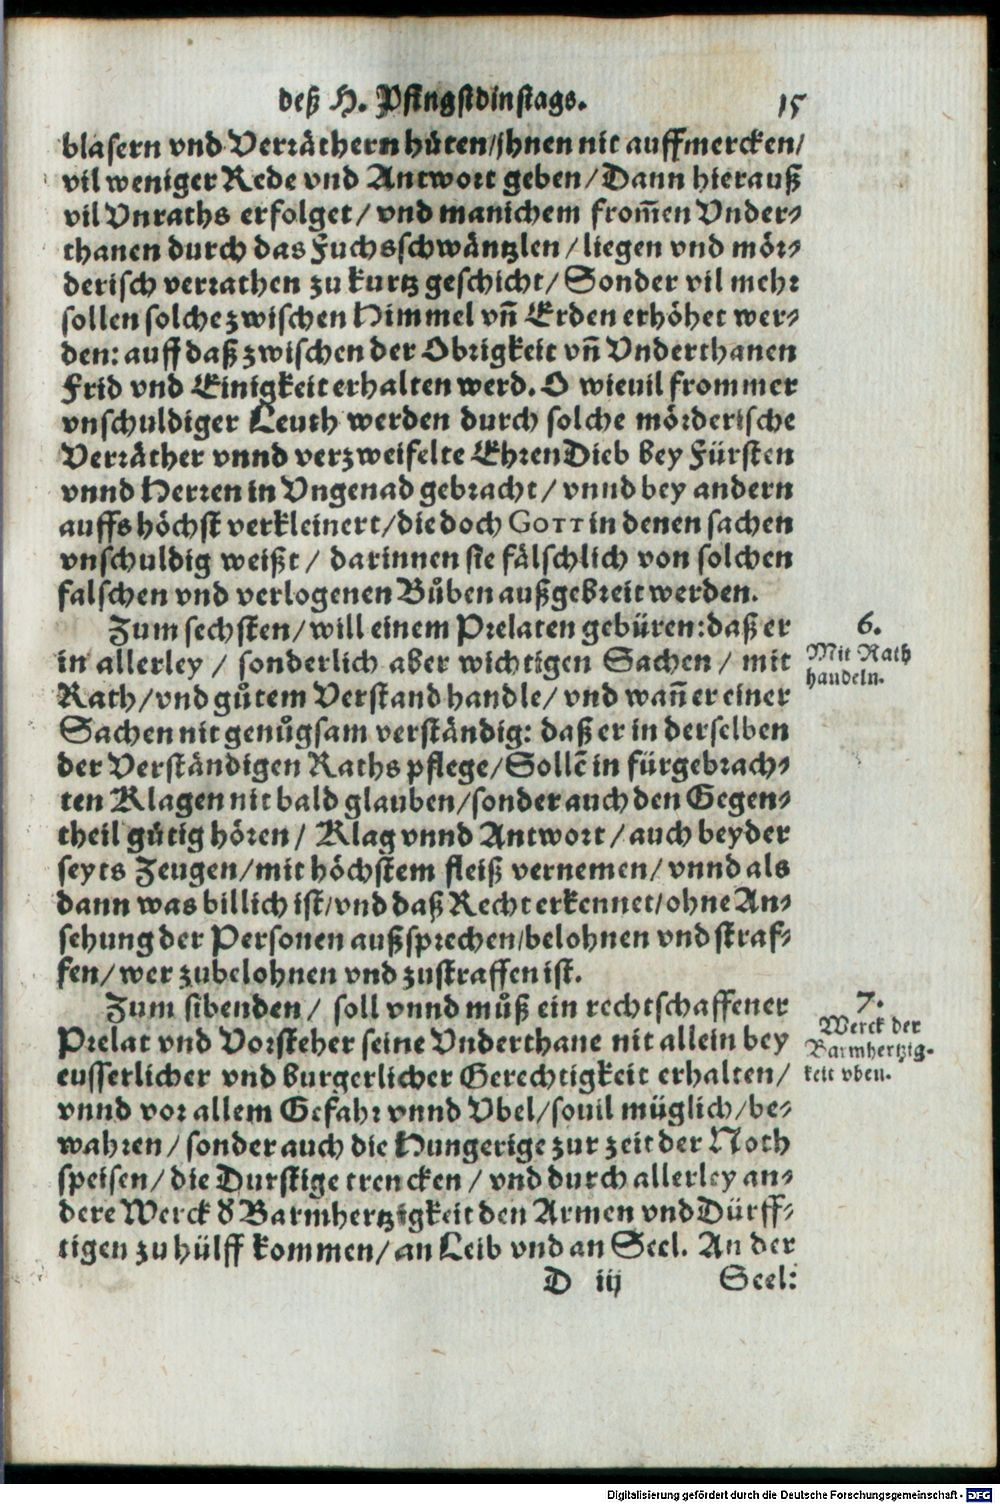 deß H. Pfingstdinstags. 15
blasern vnd Verräthern hůten/jhnen nit auffmercken/
vil weniger Rede vnd Antwort geben/Dann hierauß
vil Vnraths erfolget/vnd manichem from̃en Vnder⸗
thanen durch das Fuchsschwäntzlen/liegen vnd mör⸗
derisch verrathen zu kurtz geschicht/Sonder vil mehr
sollen solche zwischen Himmel vn̄ Erden erhöhet wer⸗
den: auff daß zwischen der Obrigkeit vn̄ Vnderthanen
Frid vnd Einigkeit erhalten werd. O wieuil frommer
vnschuldiger Leuth werden durch solche mörderische
Verräther vnnd verzweifelte EhrenDieb bey Fürsten
vnnd Herren in Vngenad gebracht/vnnd bey andern
auffs höchst verkleinert/die doch GOTT in denen sachen
vnschuldig weißt/ darinnen sie fälschlich von solchen
falschen vnd verlogenen Bůben außgebreit werden.
Zum sechsten/will einem Prelaten gebüren:daß er
in allerley / sonderlich aber wichtigen Sachen / mit
Rath/vnd gůtem Verstand handle/ vnd wan̄ er einer
Sachen nit genůgsam verständig: daß er in derselben
der Verständigen Raths pflege/Sollē in fürgebrach⸗
ten Klagen nit bald glauben/sonder auch den Gegen⸗
theil gůtig hören/ Klag vnnd Antwort/auch beyder
seyts Zeugen/mit höchstem fleiß vernemen/vnnd als
dann was billich ist/vnd daß Recht erkennet/ohne An⸗
sehung der Personen außsprechen/belohnen vnd straf⸗
fen/wer zubelohnen vnd zustraffen ist.
6.
Mit Rath
handeln.
Zum sibenden/ soll vnnd můß ein rechtschaffener
Prelat vnd Vorsteher seine Vnderthane nit allein bey
eusserlicher vnd burgerlicher Gerechtigkeit erhalten/
vnnd vor allem Gefahr vnnd Vbel/souil müglich/be⸗
wahren/sonder auch die Hungerige zur zeit der Noth
speisen/die Durstige trencken/vnd durch allerley an⸗
dere Werck ď Barmhertzigkeit den Armen vnd Dürff⸗
tigen zu hülff kommen/an Leib vnd an Seel. An der
7.
Werck der
Barmhertzig⸗
keit vben.
D iij Seel:
Digitalisierung gefördert durch die Deutsche Forschungsgemeinschaft - DFG